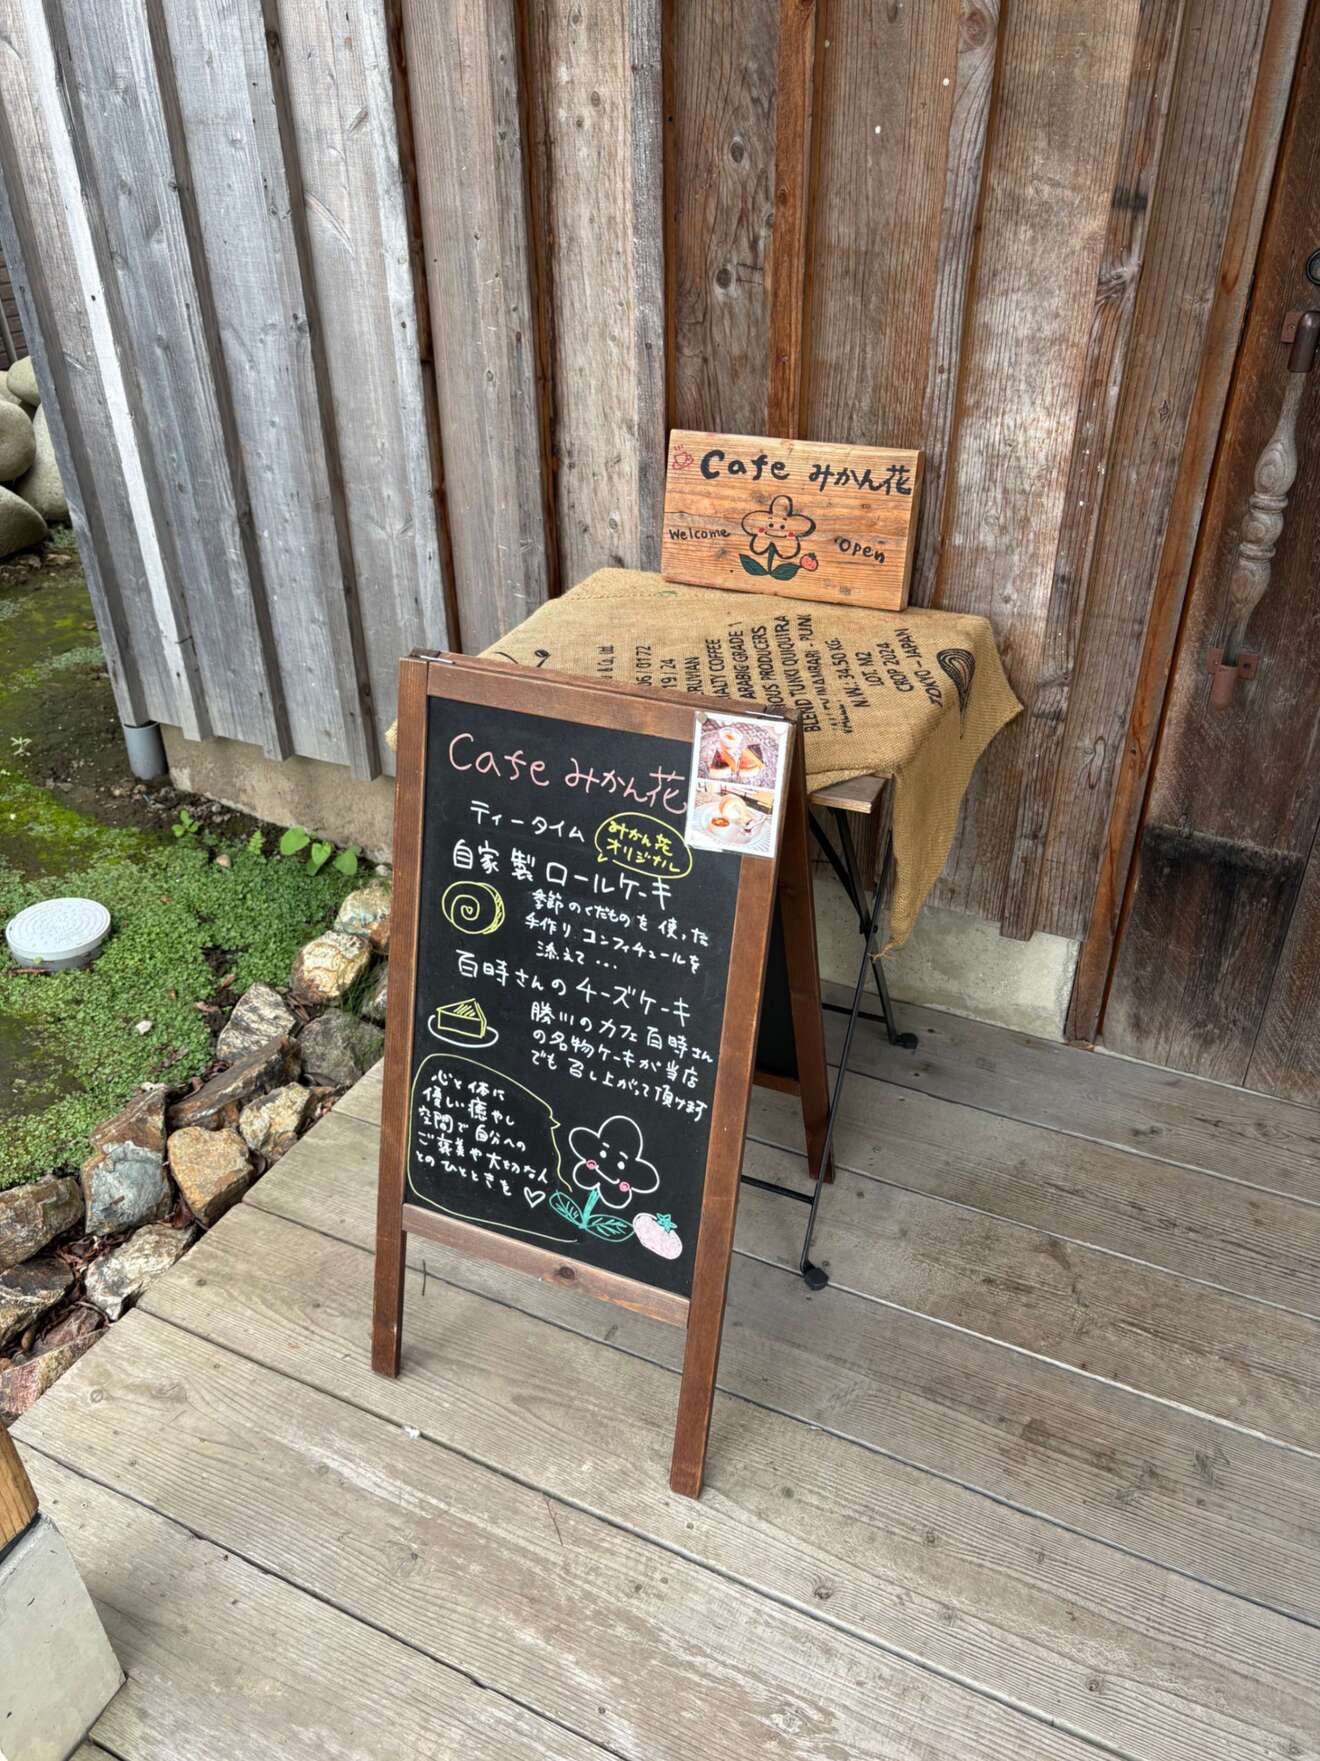 Cafe みかん花
Welcome
Open
06/0172
19/24
ARABIG GRADE 1
BLEND TUKI QUIQUIRA
N.W.: 34.50 KG
LOT: M2
CROP 2024
Cafe みかん花
ティータイム
みかん花
オリジナル
自家製ロールケーキ
季節のくだものを使った
手作りコンフィチュールを
添えて...
百時さんのチーズケーキ
勝川のカフェ百時さん
の名物ケーキが当店
でも召し上がって頂けます
心と体に
優しい癒やし
空間で自分への
ご褒美や大切な人
とのひとときを♡